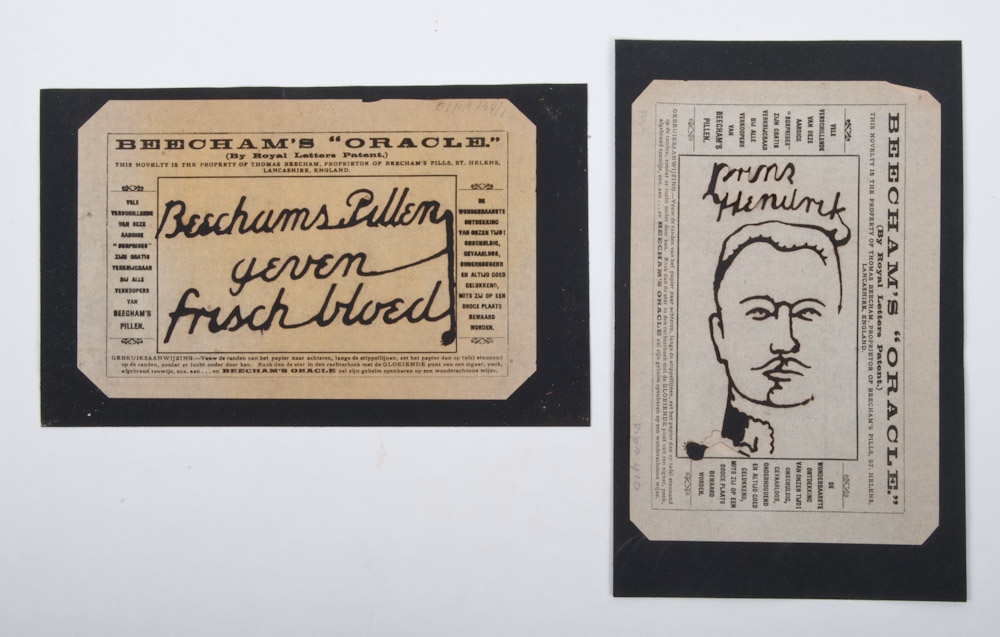 BEECHAM'S "ORACLE."
(By Royal Letters Patent.)
THIS NOVELTY IS THE PROPERTY OF THOMAS BEECHAM, PROPRIETOR OF BEECHAM'S PILLS, ST. HELENS,
LANCASHIRE, ENGLAND.
VELE
VERSCHILLENDE
VAN DEZE
AARDIGE
"SURPRISES"
ZIJN GRATIS
VERKRIJGBAAR
BIJ ALLE
VERKOOPERS
VAN
BEECHAM'S
PILLEN.
Beechams Pillen
geven
frisch bloed
DE
WONDERBAARSTE
ONTDEKKING
VAN ONZEN TIJD!
ONSCHULDIG,
GEVAARLOOS,
ONDERHOUDEND
EN ALTIJD GOED
GELUKKEND,
MITS ZIJ OP EEN
DROGE PLAATS
BEWAARD
WORDEN.
GEBRUIKSAANWIJZING.—Vouw de randen van het papier naar achteren, langs de stippellijnen, zet het papier dan op tafel steunend
op de randen, zoodat er lucht onder door kan. Raak dan de ster in den rechterhoek met de GLOEIENDE punt van een sigaar, pook,
afgebrand touwtje, enz. aan . . . en BEECHAM'S ORACLE zal zijn geheim openbaren op een wonderschoone wijze.
BEECHAM'S "ORACLE."
(By Royal Letters Patent.)
THIS NOVELTY IS THE PROPERTY OF THOMAS BEECHAM, PROPRIETOR OF BEECHAM'S PILLS, ST. HELENS,
LANCASHIRE, ENGLAND.
VELE
VERSCHILLENDE
VAN DEZE
AARDIGE
"SURPRISES"
ZIJN GRATIS
VERKRIJGBAAR
BIJ ALLE
VERKOOPERS
VAN
BEECHAM'S
PILLEN.
Prins
Hendrik
DE
WONDERBAARSTE
ONTDEKKING
VAN ONZEN TIJD!
ONSCHULDIG,
GEVAARLOOS,
ONDERHOUDEND
EN ALTIJD GOED
GELUKKEND,
MITS ZIJ OP EEN
DROGE PLAATS
BEWAARD
WORDEN.
GEBRUIKSAANWIJZING.—Vouw de randen van het papier naar achteren, langs de stippellijnen, zet het papier dan op tafel steunend
op de randen, zoodat er lucht onder door kan. Raak dan de ster in den rechterhoek met de GLOEIENDE punt van een sigaar, pook,
afgebrand touwtje, enz. aan . . . en BEECHAM'S ORACLE zal zijn geheim openbaren op een wonderschoone wijze.